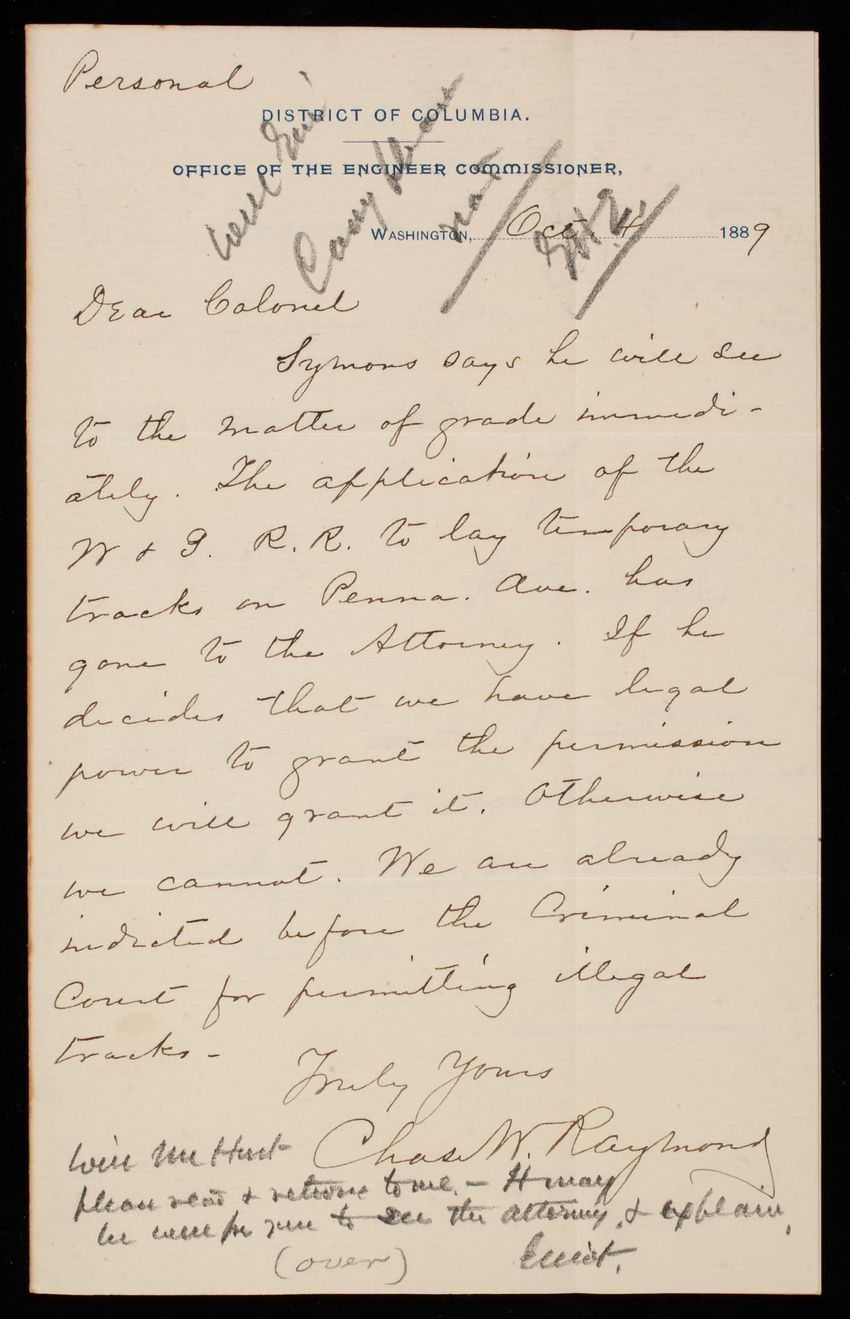 Personal
DISTRICT OF COLUMBIA.
OFFICE OF THE ENGINEER COMMISSIONER,
WASHINGTON, Oct. 4 1889
Dear Colonel
Symons says he will see
to the matter of grade immedi-
ately. The application of the
W & G. R.R. to lay temporary
tracks on Penna. Ave. has
gone to the Attorney. If he
decides that we have legal
power to grant the permission
we will grant it. Otherwise
we cannot. We are already
indicted before the Criminal
Court for permitting illegal
tracks -
Truly Yours
Chas. W. Raymond
Will Mr Hunt
please read & return to me. - It may
be well for you to see the attorney, & explain,
(over)